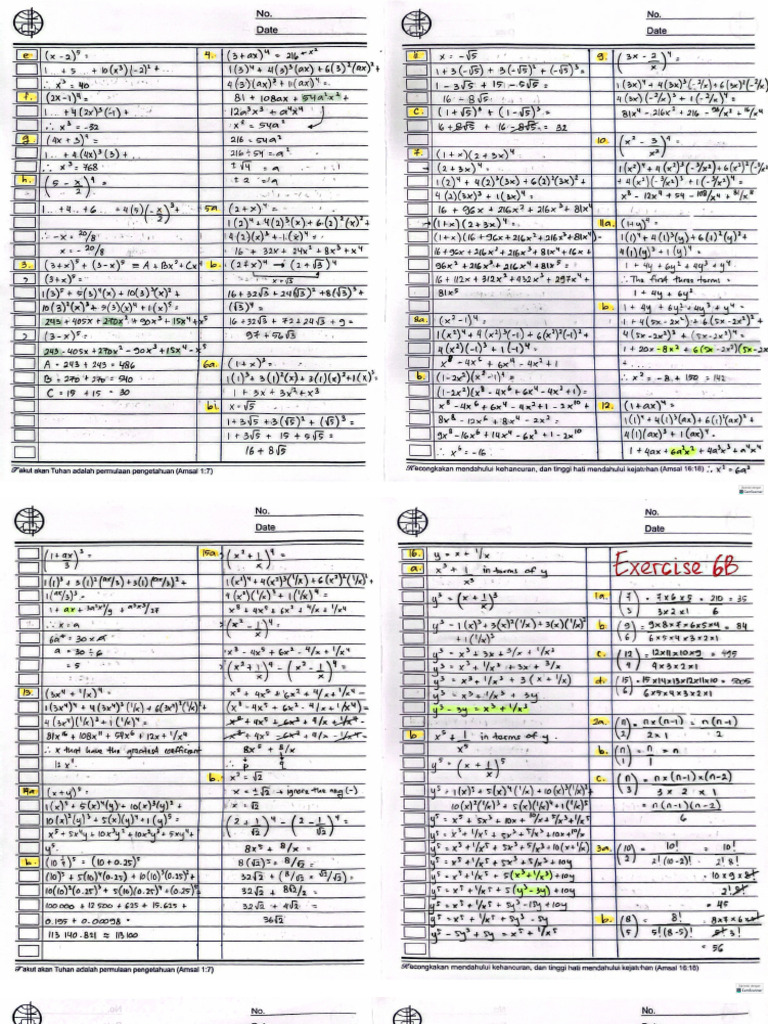 No.
Date
e (x-2)⁵ =
1... + 5... + 10(x³)(-2)² + ...
∴ x³ = 40
f. (2x-1)⁴ =
1... + 4(2x)³(-1) +
∴ x³ = -32
g (4x+3)⁴ =
1... + 4(4x)³(3) + ...
∴ x³ = 768
h. (5 - x/2)⁴ =
1... + 4... + 6... + 4(5)(-x/2)³ +
∴ -x = 20/8
x = -20/8
3. (3+x)⁵ + (3-x)⁵ ≡ A + Bx² + Cx⁴
(3+x)⁵ =
1(3)⁵ + 5(3)⁴(x) + 10(3)³(x)² +
10(3)²(x)³ + 5(3)(x)⁴ + 1(x)⁵ =
243 + 405x + 270x² + 90x³ + 15x⁴ + x⁵
(3-x)⁵ =
243 - 405x + 270x² - 90x³ + 15x⁴ - x⁵
A = 243 + 243 = 486
B = 270 + 270 = 540
C = 15 + 15 = 30
4. (3+ax)⁴ = 216 → x²
1(3)⁴ + 4(3)³(ax) + 6(3)²(ax)² +
4(3)(ax)³ + 1(ax)⁴ =
81 + 108ax + 54a²x² +
12a³x³ + a⁴x⁴
x² = 54a²
216 = 54a²
216 ÷ 54 = a²
±√4 = a
±2 = a
5a (2+x)⁴ =
1(2)⁴ + 4(2)³(x) + 6(2)²(x)² +
4(2)(x)³ + 1(x)⁴ =
16 + 32x + 24x² + 8x³ + x⁴
b. (2+x)⁴ → (2+√3)⁴
x=√3
16 + 32√3 + 24(√3)² + 8(√3)³ +
(√3)⁴ =
16 + 32√3 + 72 + 24√3 + 9 =
97 + 56√3
6a (1+x)³ =
1(1)³ + 3(1)²(x) + 3(1)(x)² + 1(x)³ =
1 + 3x + 3x² + x³
bi x = √5
1 + 3√5 + 3(√5)² + (√5)³ =
1 + 3√5 + 15 + 5√5 =
16 + 8√5
Takut akan Tuhan adalah permulaan pengetahuan (Amsal 1:7)
No.
Date
x = -√5
1 + 3(-√5) + 3(-√5)² + (-√5)³ =
1 - 3√5 + 15 - 5√5 =
16 - 8√5
C. (1+√5)³ + (1-√5)³ =
16 + 8√5 + 16 - 8√5 = 32
7. (1+x)(2+3x)⁴
→ (2+3x)⁴ =
1(2)⁴ + 4(2)³(3x) + 6(2)²(3x)² +
4(2)(3x)³ + 1(3x)⁴ =
16 + 96x + 216x² + 216x³ + 81x⁴
→ (1+x)(2+3x)⁴ =
(1+x)(16 + 96x + 216x² + 216x³ + 81x⁴) =
16 + 96x + 216x² + 216x³ + 81x⁴ + 16x +
96x² + 216x³ + 216x⁴ + 81x⁵ =
16 + 112x + 312x² + 432x³ + 297x⁴ +
81x⁵
8a (x²-1)⁴ =
1(x²)⁴ + 4(x²)³(-1) + 6(x²)²(-1)² +
4(x²)(-1)³ + 1(-1)⁴ =
x⁸ - 4x⁶ + 6x⁴ - 4x² + 1
b. (1-2x²)(x²-1)⁴ =
(1-2x²)(x⁸ - 4x⁶ + 6x⁴ - 4x² + 1) =
x⁸ - 4x⁶ + 6x⁴ - 4x² + 1 - 2x¹⁰ +
8x⁸ - 12x⁶ + 8x⁴ - 2x² =
9x⁸ - 16x⁶ + 14x⁴ - 6x² + 1 - 2x¹⁰
∴ x⁶ = -16
9. (3x - 2/x)⁴ =
1(3x)⁴ + 4(3x)³(-2/x) + 6(3x)²(-2/x)² +
4(3x)(-2/x)³ + 1(-2/x)⁴ =
81x⁴ - 216x² + 216 - 96/x² + 16/x⁴
10. (x² - 3/x²)⁴ =
1(x²)⁴ + 4(x²)³(-3/x²) + 6(x²)²(-3/x²)²
+ 4(x²)(-3/x²)³ + 1(-3/x²)⁴ =
x⁸ - 12x⁴ + 54 - 108/x⁴ + 81/x⁸
11a. (1+y)⁴ =
1(1)⁴ + 4(1)³(y) + 6(1)²(y)² +
4(1)(y)³ + 1(y)⁴ =
1 + 4y + 6y² + 4y³ + y⁴
∴ The first three terms =
1 + 4y + 6y²
b. 1 + 4y + 6y² + 4y³ + y⁴
1 + 4(5x-2x²) + 6(5x-2x²)² +
4(5x-2x²)³ + (5x-2x²)⁴ =
1 + 20x - 8x² + 6(5x-2x²)(5x-2x
∴ x² = -8 + 150 = 142
12. (1+ax)⁴ =
1(1)⁴ + 4(1)³(ax) + 6(1)²(ax)² +
4(1)(ax)³ + 1(ax)⁴ =
1 + 4ax + 6a²x² + 4a³x³ + a⁴x⁴
∴ x² = 6a²
Kecongkakan mendahului kehancuran, dan tinggi hati mendahului kejatuhan (Amsal 16:18)
No.
Date
(1 + ax/3)³ =
1(1)³ + 3(1)²(ax/3) + 3(1)(ax/3)² +
1(ax/3)³ =
1 + ax + 3a²x²/9 + a³x³/27
∴ x = a
6a² = 30 × a
a = 30 ÷ 6
= 5
13. (3x⁴ + 1/x)⁴ =
1(3x⁴)⁴ + 4(3x⁴)³(1/x) + 6(3x⁴)²(1/x)² +
4(3x⁴)(1/x)³ + 1(1/x)⁴ =
81x¹⁶ + 108x¹¹ + 54x⁶ + 12x + 1/x⁴
∴ x that have the greatest coefficient
12x²
14a (x+y)⁵ =
1(x)⁵ + 5(x)⁴(y) + 10(x)³(y)² +
10(x)²(y)³ + 5(x)(y)⁴ + 1(y)⁵ =
x⁵ + 5x⁴y + 10x³y² + 10x²y³ + 5xy⁴ +
y⁵
b. (10 ¼)⁵ = (10 + 0.25)⁵
(10)⁵ + 5(10)⁴(0.25) + 10(10)³(0.25)² +
10(10)²(0.25)³ + 5(10)(0.25)⁴ + (0.25)⁵
100000 + 12500 + 625 + 15.625 +
0.195 + 0.00098 =
113140.821 ≈ 113100
15a. (x² + 1/x)⁴ =
1(x²)⁴ + 4(x²)³(1/x) + 6(x²)²(1/x)²
4(x²)(1/x)³ + 1(1/x)⁴ =
x⁸ + 4x⁵ + 6x² + 4/x + 1/x⁴
(x² - 1/x)⁴ =
x⁸ - 4x⁵ + 6x² - 4/x + 1/x⁴
(x² + 1/x)⁴ - (x² - 1/x)⁴ =
x⁸ + 4x⁵ + 6x² + 4/x + 1/x⁴ -
(x⁸ - 4x⁵ + 6x² - 4/x + 1/x⁴) =
8x⁵ + 8/x
p q
b. x² = √2
x = ±√2 → ignore the neg (-)
x = √2
(2 + 1/√2)⁴ - (2 - 1/√2)⁴ =
8x⁵ + 8/x =
8(√2)⁵ + 8/√2 =
32√2 + (8/√2 × √2/√2) =
32√2 + 8√2/2 =
32√2 + 4√2 =
36√2
Takut akan Tuhan adalah permulaan pengetahuan (Amsal 1:7)
No.
Date
16. y = x + 1/x
a. x³ + 1/x³ in terms of y
y³ = (x + 1/x)³
y³ = 1(x)³ + 3(x)²(1/x) + 3(x)(1/x)²
+ 1(1/x)³
y³ = x³ + 3x + 3/x + 1/x³
y³ = x³ + 1/x³ + 3x + 3/x
y³ = x³ + 1/x³ + 3(x + 1/x)
y³ = x³ + 1/x³ + 3y
y³ - 3y = x³ + 1/x³
b x⁵ + 1/x⁵ in terms of y.
y⁵ = (x + 1/x)⁵
y⁵ = 1(x)⁵ + 5(x)⁴(1/x) + 10(x)³(1/x)²
10(x)²(1/x)³ + 5(x)(1/x)⁴ + 1(1/x)⁵
y⁵ = x⁵ + 5x³ + 10x + 10/x + 5/x³ + 1/x⁵
y⁵ = x⁵ + 1/x⁵ + 5x³ + 5/x³ + 10x + 10/x
y⁵ = x⁵ + 1/x⁵ + 5x³ + 5/x³ + 10(x + 1/x)
y⁵ = x⁵ + 1/x⁵ + 5x³ + 5/x³ + 10y
y⁵ = x⁵ + 1/x⁵ + 5(x³ + 1/x³) + 10y
y⁵ = x⁵ + 1/x⁵ + 5(y³ - 3y) + 10y
y⁵ = x⁵ + 1/x⁵ + 5y³ - 15y + 10y
y⁵ = x⁵ + 1/x⁵ + 5y³ - 5y
y⁵ - 5y³ + 5y = x⁵ + 1/x⁵
Exercise 6B
1a. (7 3) = 7×6×5 / 3×2×1 = 210/6 = 35
b (9 6) = 9×8×7×6×5×4 / 6×5×4×3×2×1 = 84
c. (12 4) = 12×11×10×9 / 4×3×2×1 = 495
d. (15 6) = 15×14×13×12×11×10 / 6×5×4×3×2×1 = 5005
2a. (n 2) = n×(n-1) / 2×1 = n(n-1) / 2
b. (n 1) = n/1 = n
c. (n 3) = n×(n-1)×(n-2) / 3×2×1
= n(n-1)(n-2) / 6
3a. (10 2) = 10! / 2!(10-2)! = 10! / 2!8!
= 10×9×8! / 2!8!
= 45
b. (8 5) = 8! / 5!(8-5)! = 8×7×6×5! / 5!3!
= 56
Kecongkakan mendahului kehancuran, dan tinggi hati mendahului kejatuhan (Amsal 16:18)
No.
Date
No.
Date